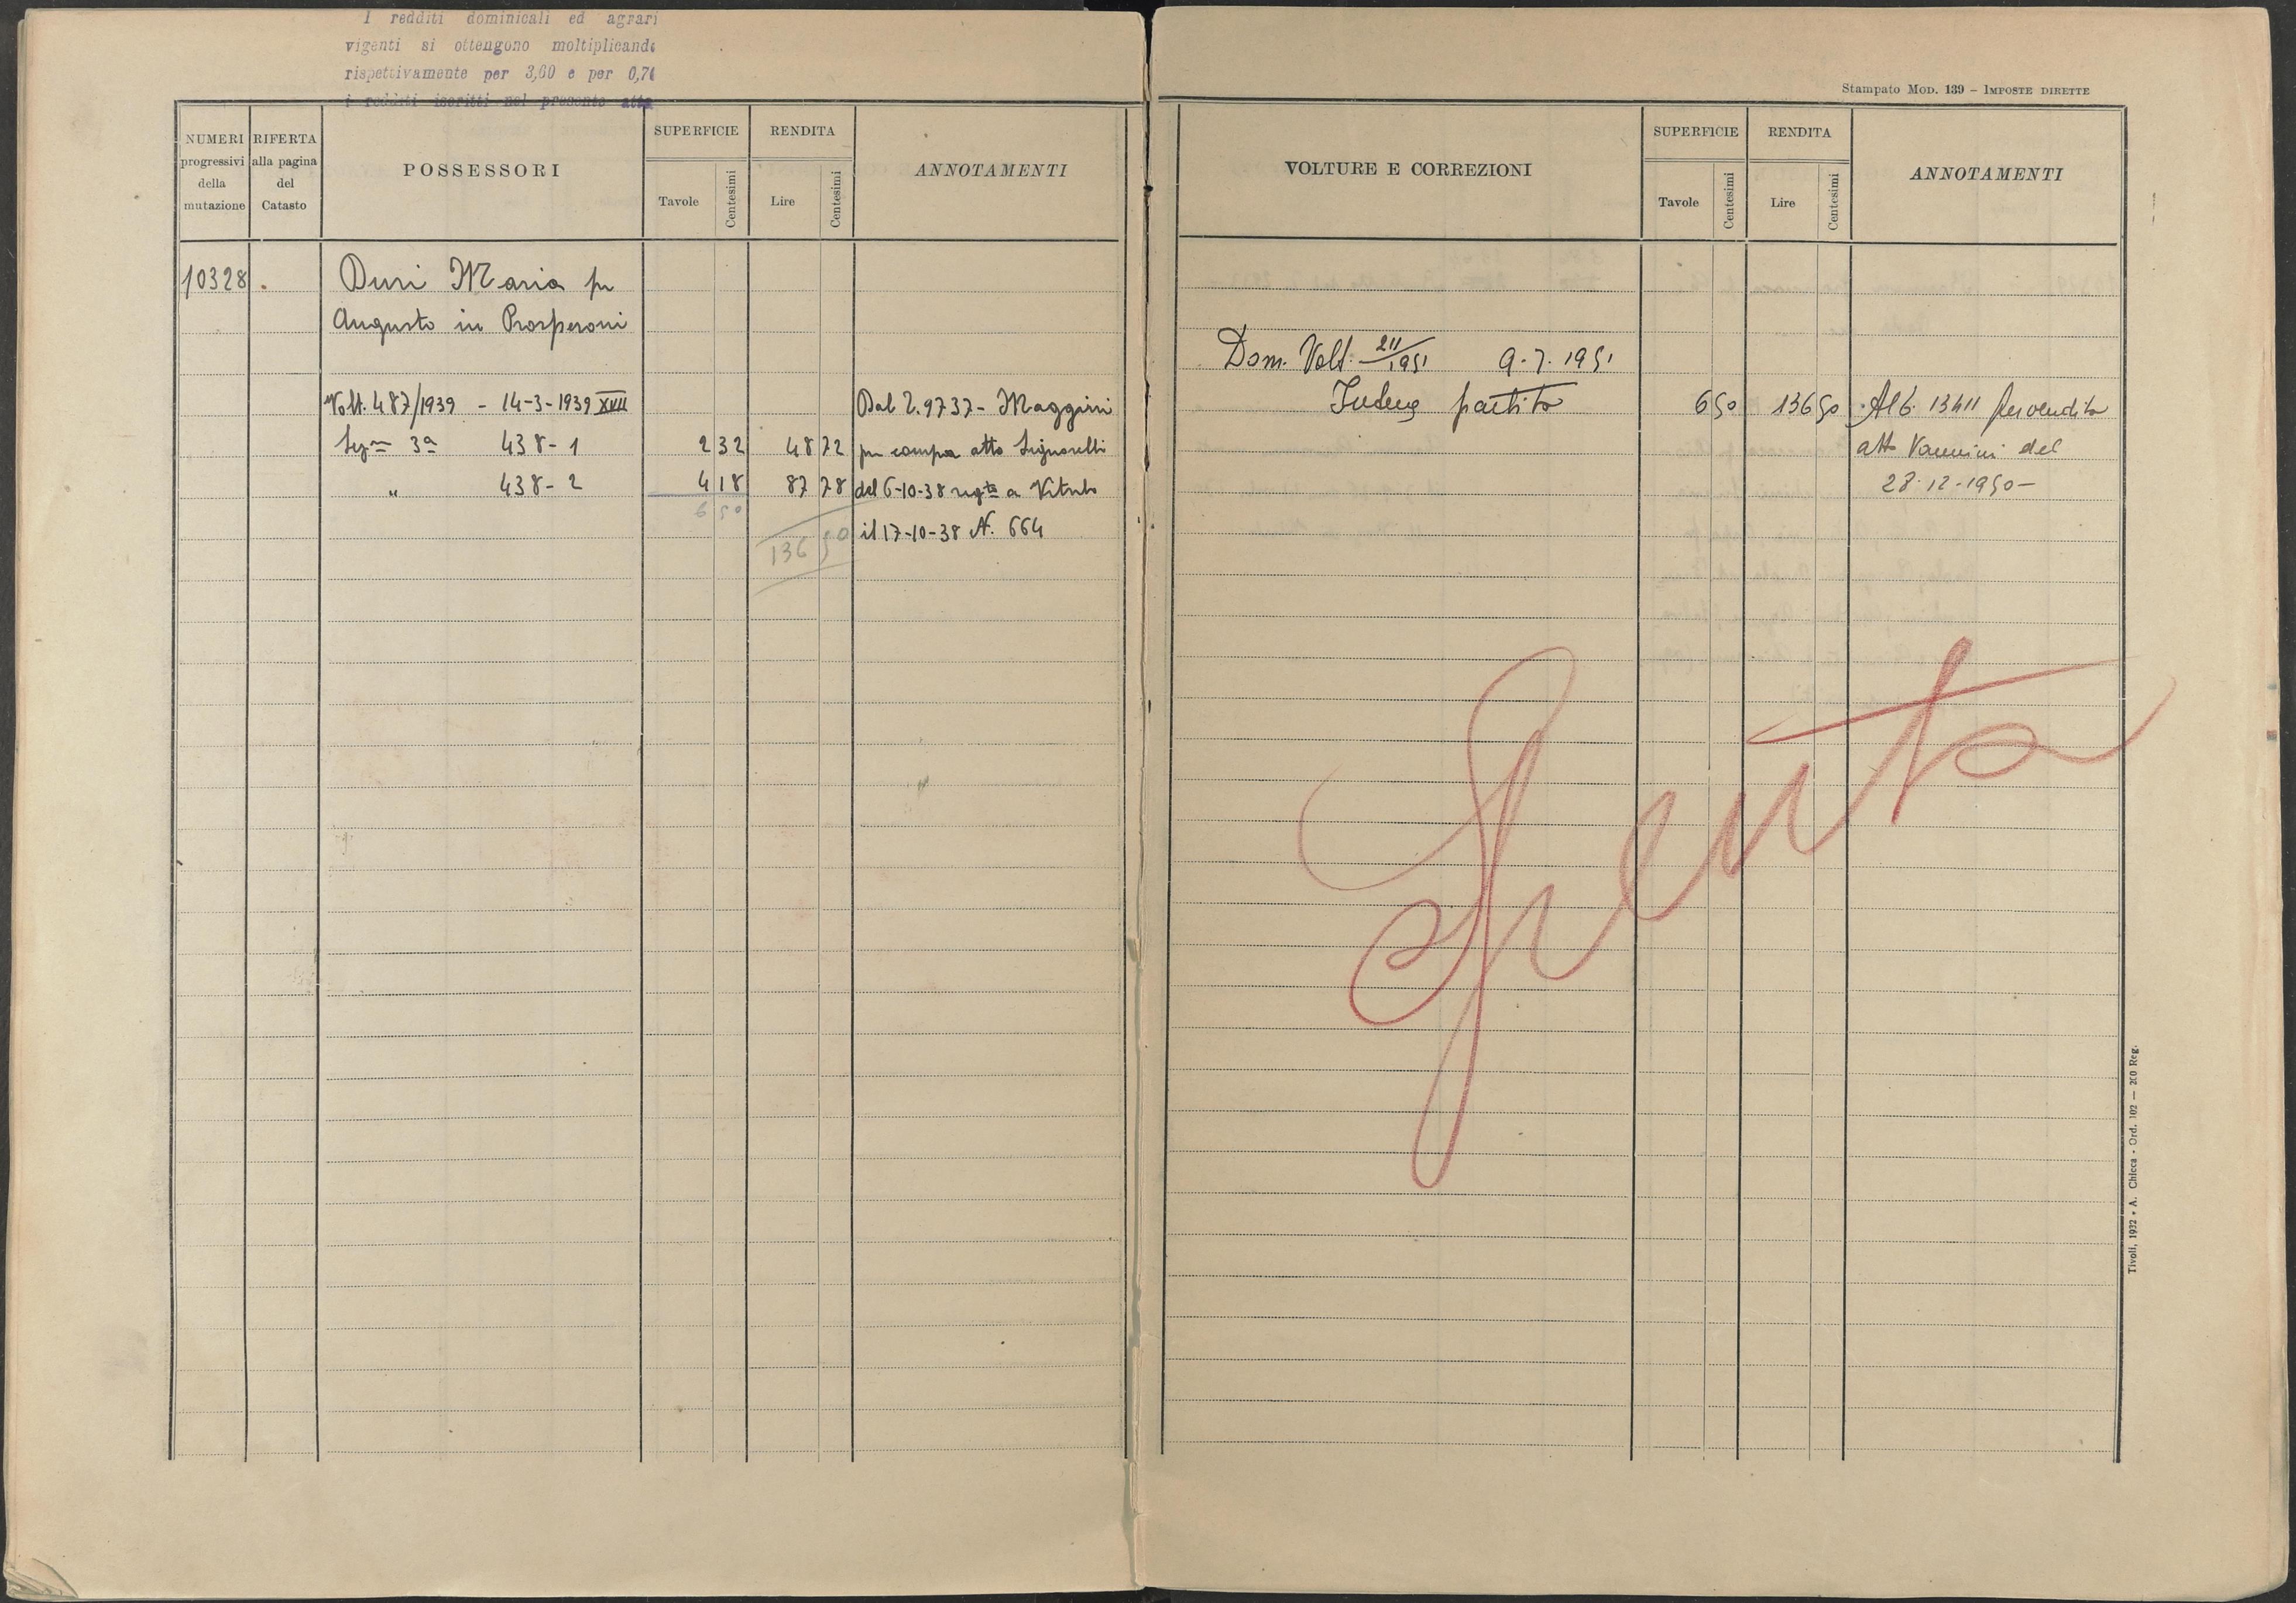 I redditi dominicali ed agrari
vigenti si ottengono moltiplicando
rispettivamente per 3,60 e per 0,70
i redditi iscritti nel presente atto
NUMERI
progressivi
della
mutazione
RIFERTA
alla pagina
del
Catasto
POSSESSORI
SUPERFICIE
Tavole
Centesimi
RENDITA
Lire
Centesimi
ANNOTAMENTI
10328
Duri Maria fu
Augusto in Prosperoni
Volt. 487/1939 - 14-3-1939 XVII
Sez. 3a 438-1 2 32 48 72
" 438-2 4 18 87 78
6 50
136 50
Dal 2.9737 - Maggini
per compra atto Signorelli
del 6-10-38 regto a Viterbo
il 17-10-38 N. 664
Stampato Mod. 139 - Imposte dirette
VOLTURE E CORREZIONI
SUPERFICIE
Tavole
Centesimi
RENDITA
Lire
Centesimi
ANNOTAMENTI
Dom. Volt. 211/1951 9.7.1951
Intera partita 6 50 136 50 Al 6. 13411 per vendita
atto Vannini del
28.12.1950 -
Spenta
Tivoli, 1932 - A. Chicca - Ord. 102 — 200 Reg.